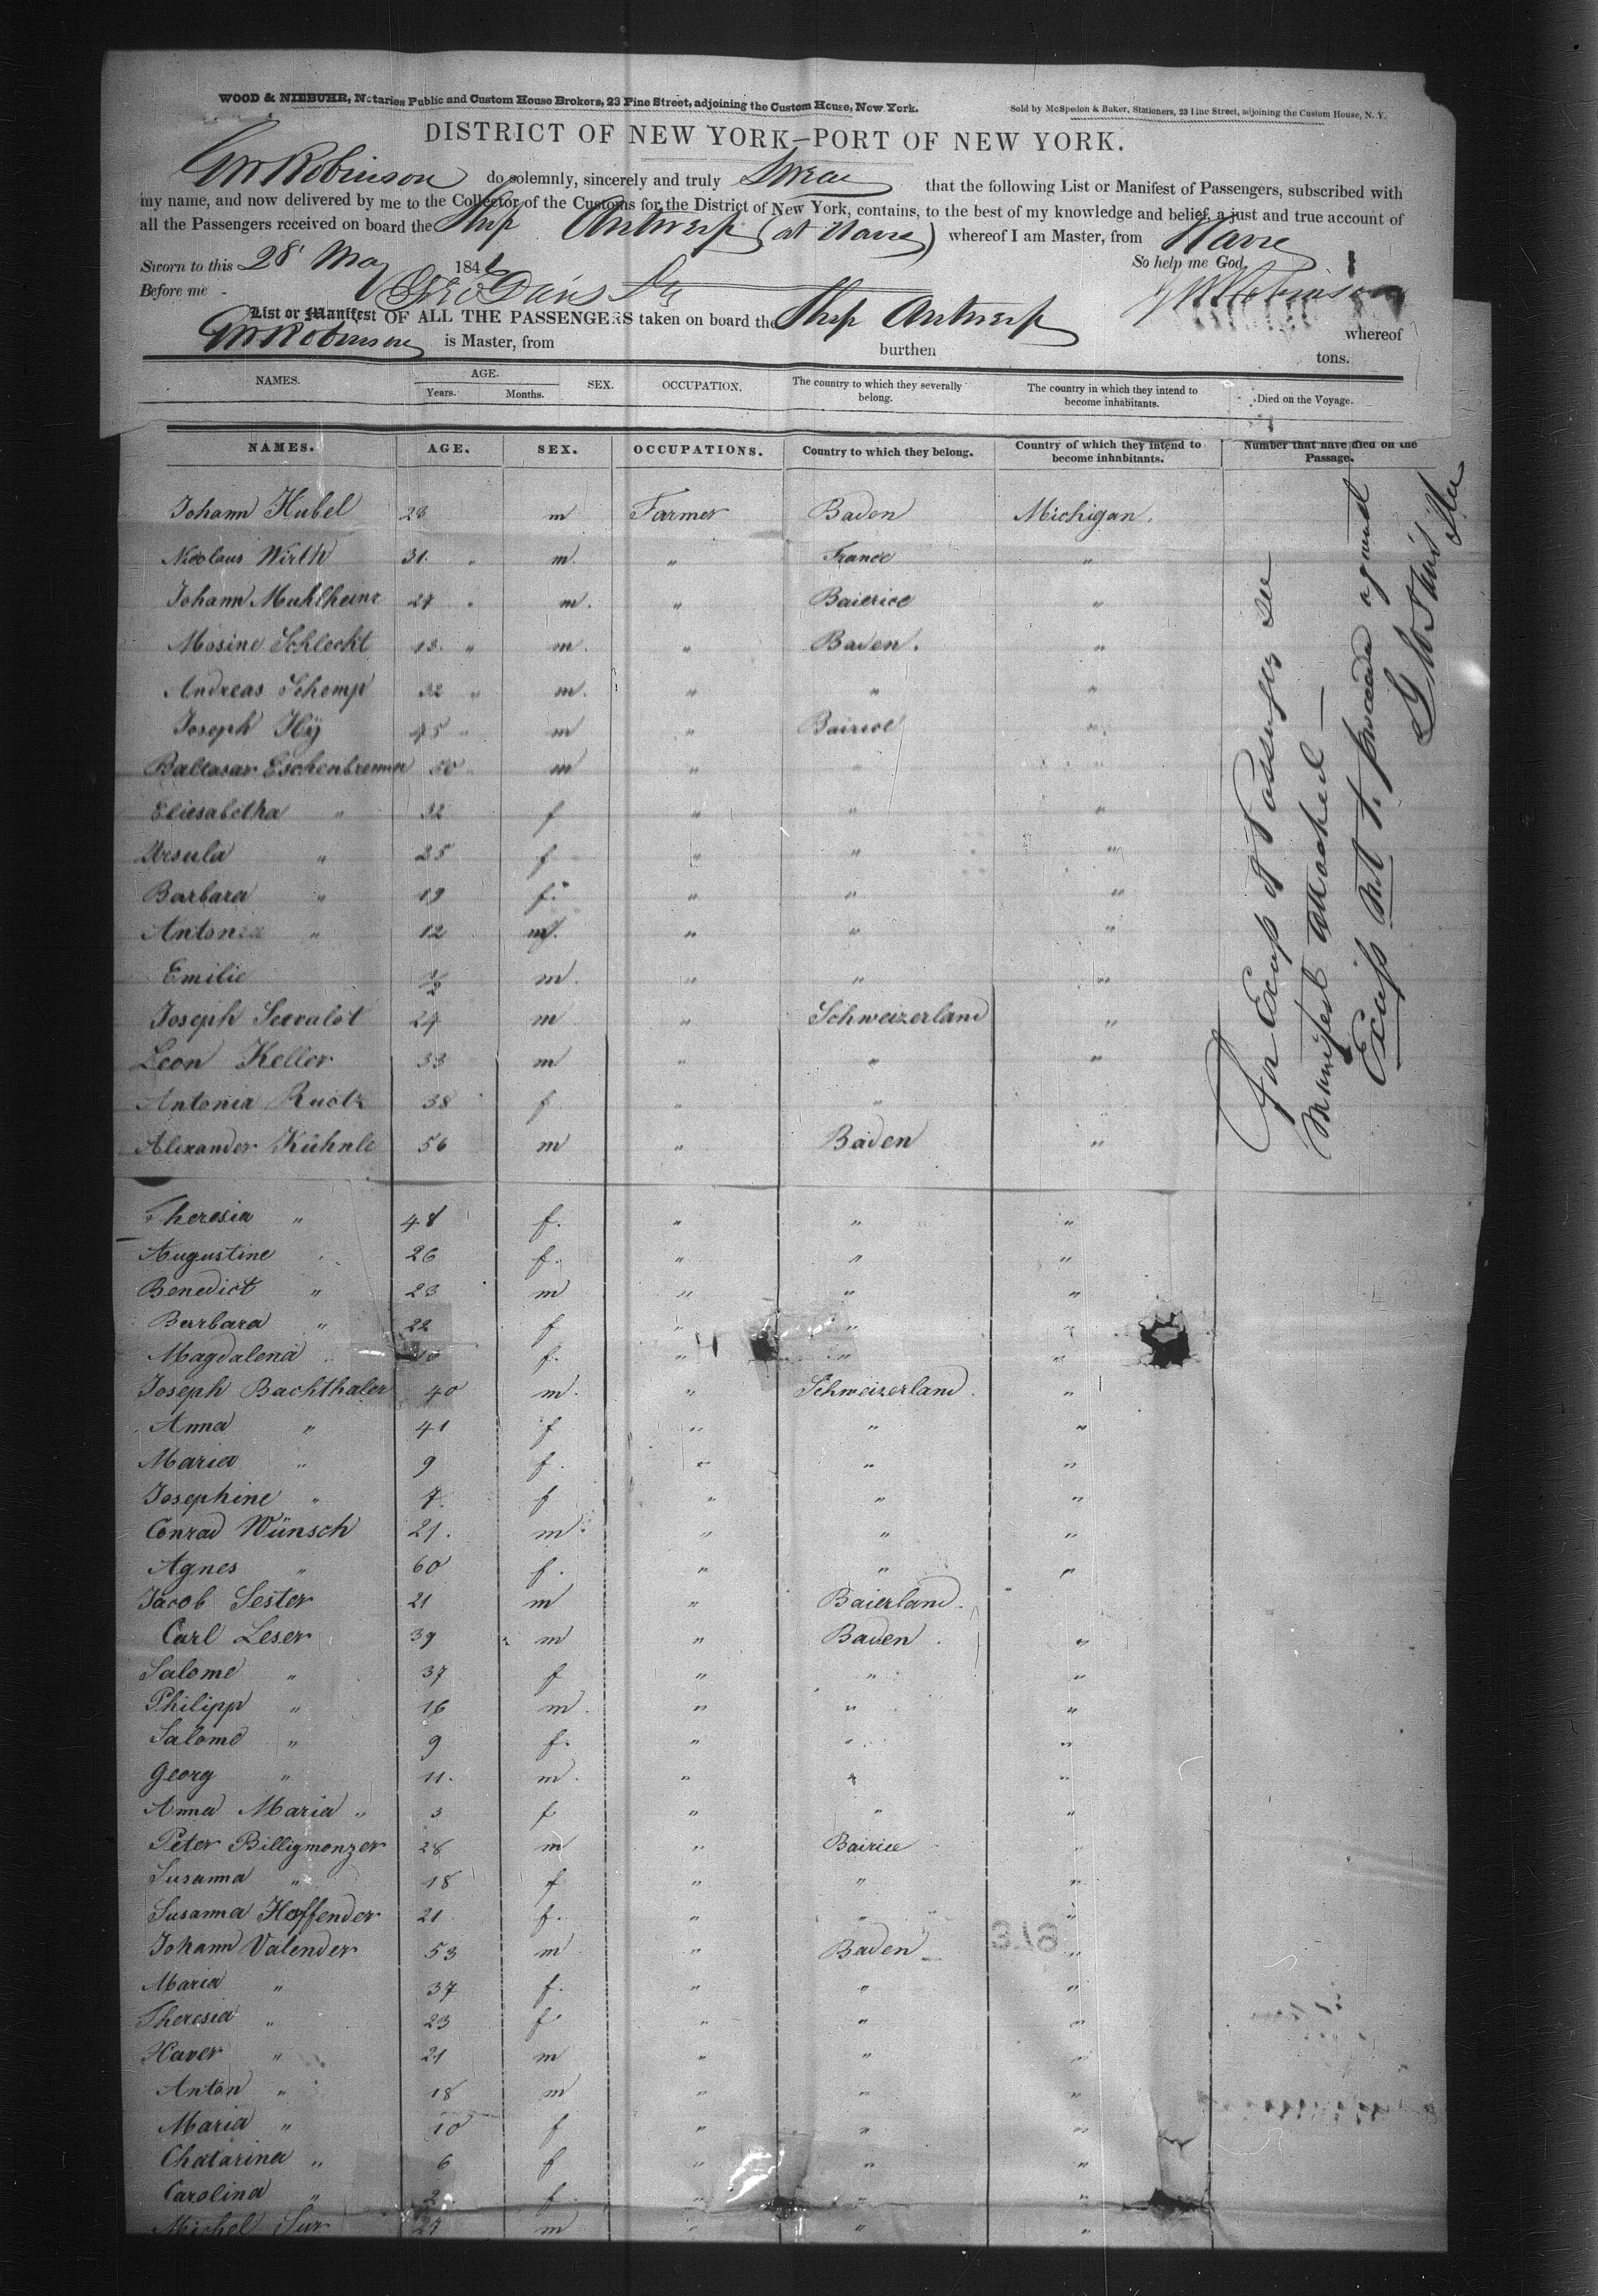 WOOD & NIEBUHR, Notaries Public and Custom House Brokers, 23 Pine Street, adjoining the Custom House, New York.
Sold by McSpedon & Baker, Stationers, 23 Pine Street, adjoining the Custom House, N. Y.
DISTRICT OF NEW YORK—PORT OF NEW YORK.
GW Robinson do solemnly, sincerely and truly Swear that the following List or Manifest of Passengers, subscribed with
my name, and now delivered by me to the Collector of the Customs for the District of New York, contains, to the best of my knowledge and belief, a just and true account of
all the Passengers received on board the Ship Antwerp (at Havre) whereof I am Master, from Havre
Sworn to this 28 May 1846 So help me God
Before me GW Robinson
List or Manifest OF ALL THE PASSENGERS taken on board the Ship Antwerp whereof
GW Robinson is Master, from burthen tons.
NAMES. AGE. Years. Months. SEX. OCCUPATION. The country to which they severally belong. The country in which they intend to become inhabitants. Died on the Voyage.
NAMES. AGE. SEX. OCCUPATIONS. Country to which they belong. Country of which they intend to become inhabitants. Number that have died on the Passage.
Johann Hubel 23 m Farmer Baden Michigan.
Nicolaus Wirth 31. " m. " France "
Johann Muhlheinz 27 " m. " Baierice "
Mosine Schlecht 13. " m. " Baden. "
Andreas Schomp 32 " m. " " "
Joseph Hÿ 45 " m " Bairice "
Baltasar Eschenbrenner 50 m " " "
Eliesabetha " 32 f " " "
Ursula " 25 f " " "
Barbara " 19 f. " " "
Antonia " 12 m. " " "
Emilie 1/2 m. " " "
Joseph Seevalot 24 m " Schweizerland "
Leon Keller 33 m " " "
Antonia Ruotz 38 f " "
Alexander Kühnle 56 m " Baden "
Theresia " 48 f. " " "
Augustine " 26 f. " " "
Benedict " 23 m " " "
Barbara " 22 f " " "
Magdalena " 10 f. " " "
Joseph Bachthaler 40 m. " Schweizerland. "
Anna " 41 f " " "
Maria " 9 f. " " "
Josephine " 7. f " " "
Conrad Wünsch 21. m. " " "
Agnes " 60 f. " " "
Jacob Sester 21 m " Baierland. "
Carl Leser 39 m " Baden. "
Salome " 37 f " " "
Philipp " 16 m. " " "
Salome " 9 f. " " "
Georg " 11. m. " " "
Anna Maria " 3 f " " "
Peter Billigmonzer 28 m " Bairice "
Susanna " 18 f " " "
Susanna Hoffender 21 f. " " "
Johann Valender 53 m " Baden "
Maria " 37 f. " " "
Theresia " 23 f. " " "
Xaver " 21 m " " "
Anton " 18 m " " "
Maria " 10 f " " "
Chatarina " 6 f " " "
Carolina " 2 f " " "
Michel Sur 27 m " " "
For Excess of Passengers see
Manifest attached —
Excess not to proceed against
316